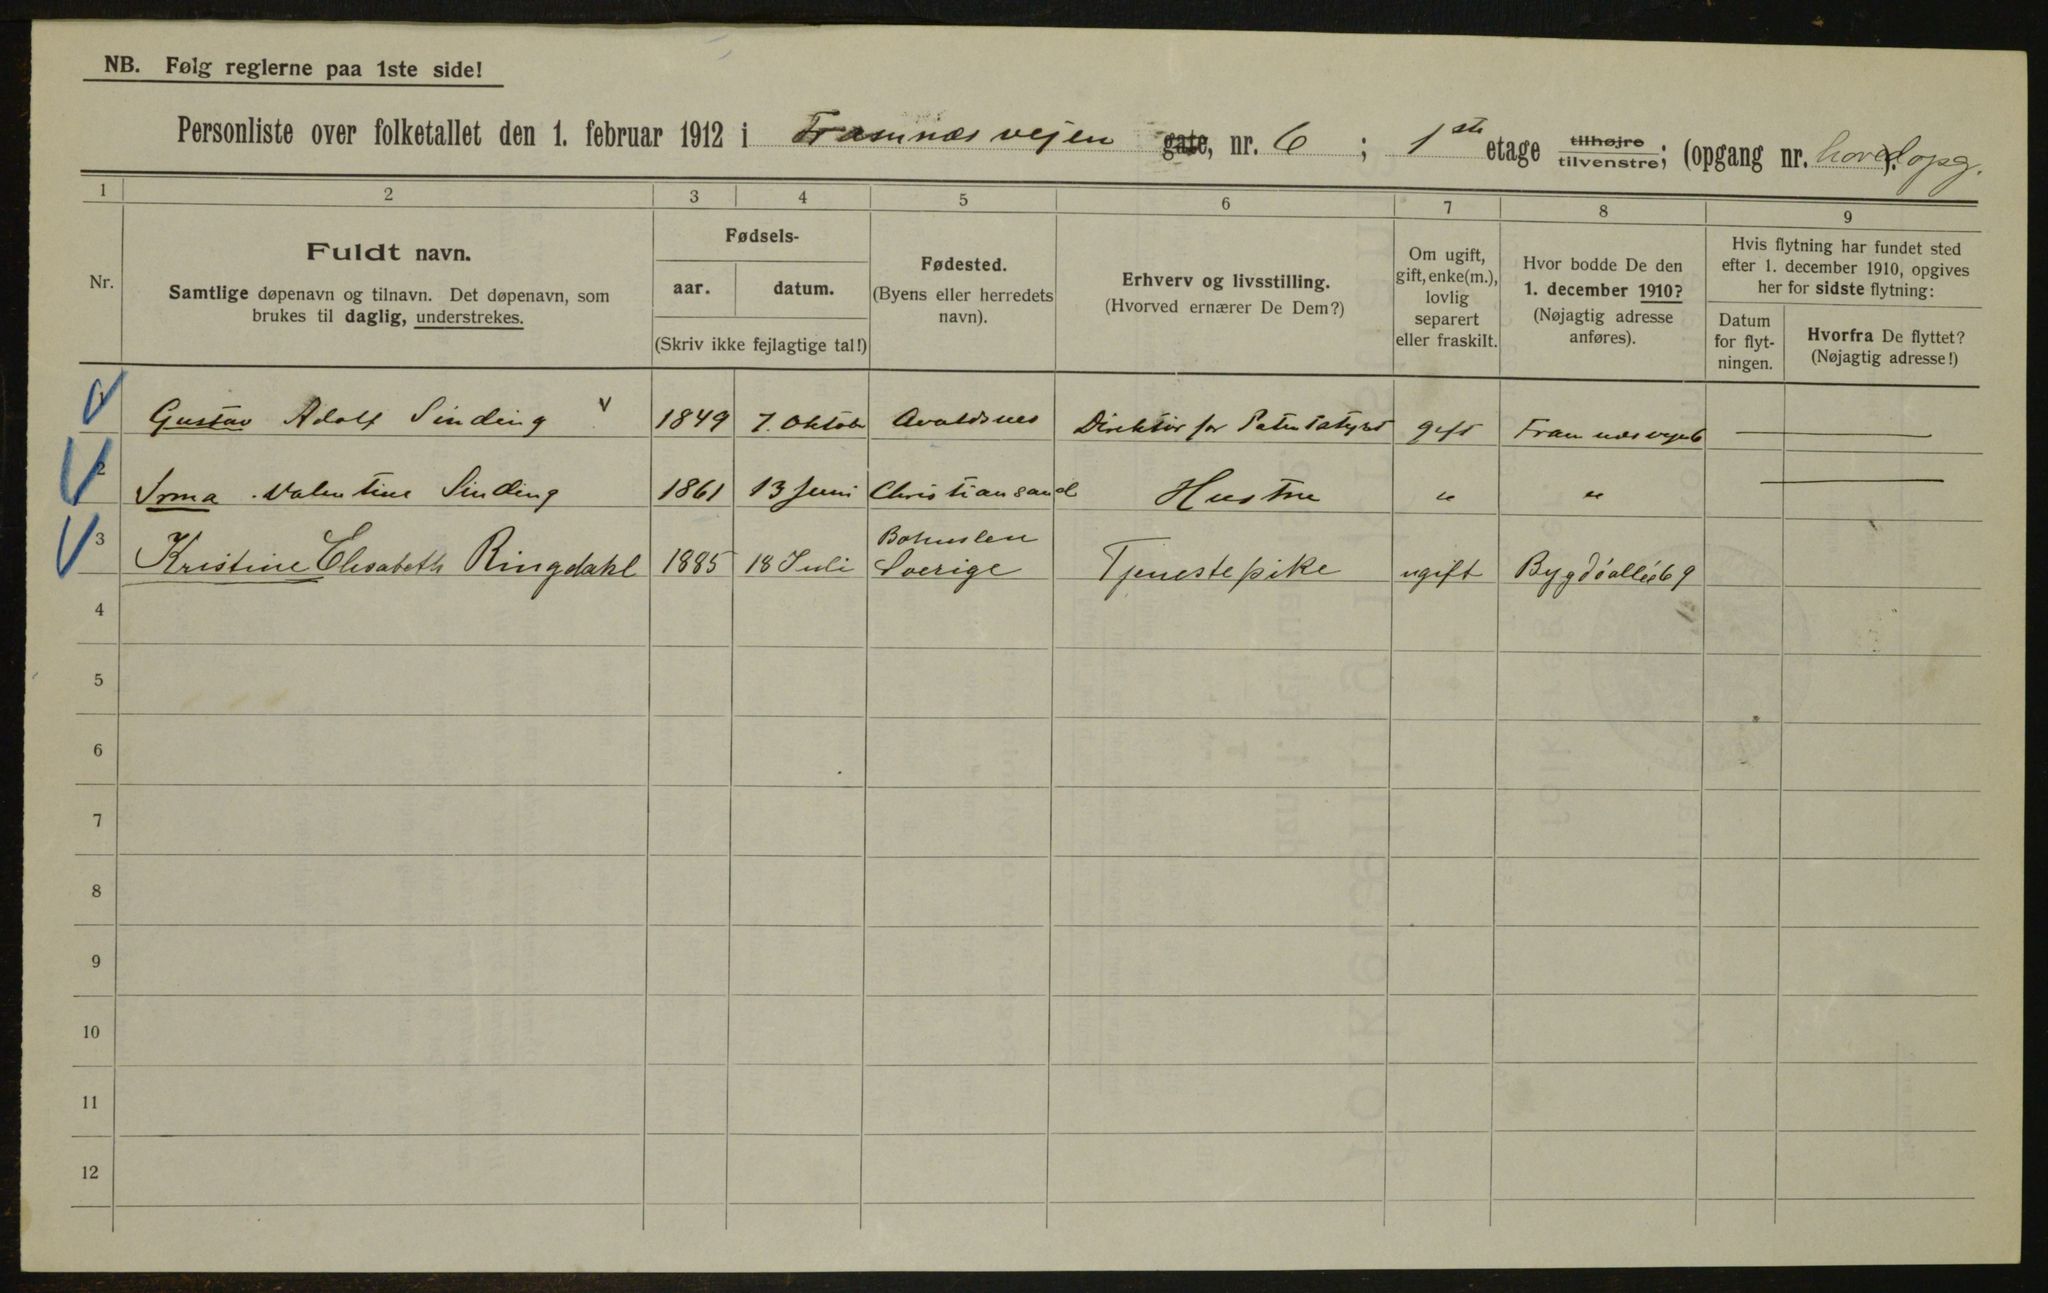 NB. Følg reglerne paa 1ste side!
Personliste over folketallet den 1. februar 1912 i Framnæsvejen gate, nr. 6; 1ste etage tilhøjre tilvenstre; (opgang nr. hovedopg.).
1 2 3 4 5 6 7 8 9
Nr.
Fuldt navn.
Samtlige døpenavn og tilnavn. Det døpenavn, som
brukes til daglig, understrekes.
Fødsels-
aar. datum.
(Skriv ikke fejlagtige tal!)
Fødested.
(Byens eller herredets
navn).
Erhverv og livsstilling.
(Hvorved ernærer De Dem?)
Om ugift,
gift, enke(m.),
lovlig
separert
eller fraskilt.
Hvor bodde De den
1. december 1910?
(Nøjagtig adresse
anføres).
Hvis flytning har fundet sted
efter 1. december 1910, opgives
her for sidste flytning:
Datum
for flyt-
ningen.
Hvorfra De flyttet?
(Nøjagtig adresse!)
1 Gustav Adolf Sinding 1849 7. Oktobr Avaldsnes Direktør for Patentstyret gift Framnæsvejen 6
2 Irma Valentine Sinding 1861 13 Juni Christiansand Hustru " "
3 Kristine Elisabeth Ringdahl 1885 18 Juli Bohuslen Sverige Tjenestepike ugift Bygdöallée 69
4
5
6
7
8
9
10
11
12